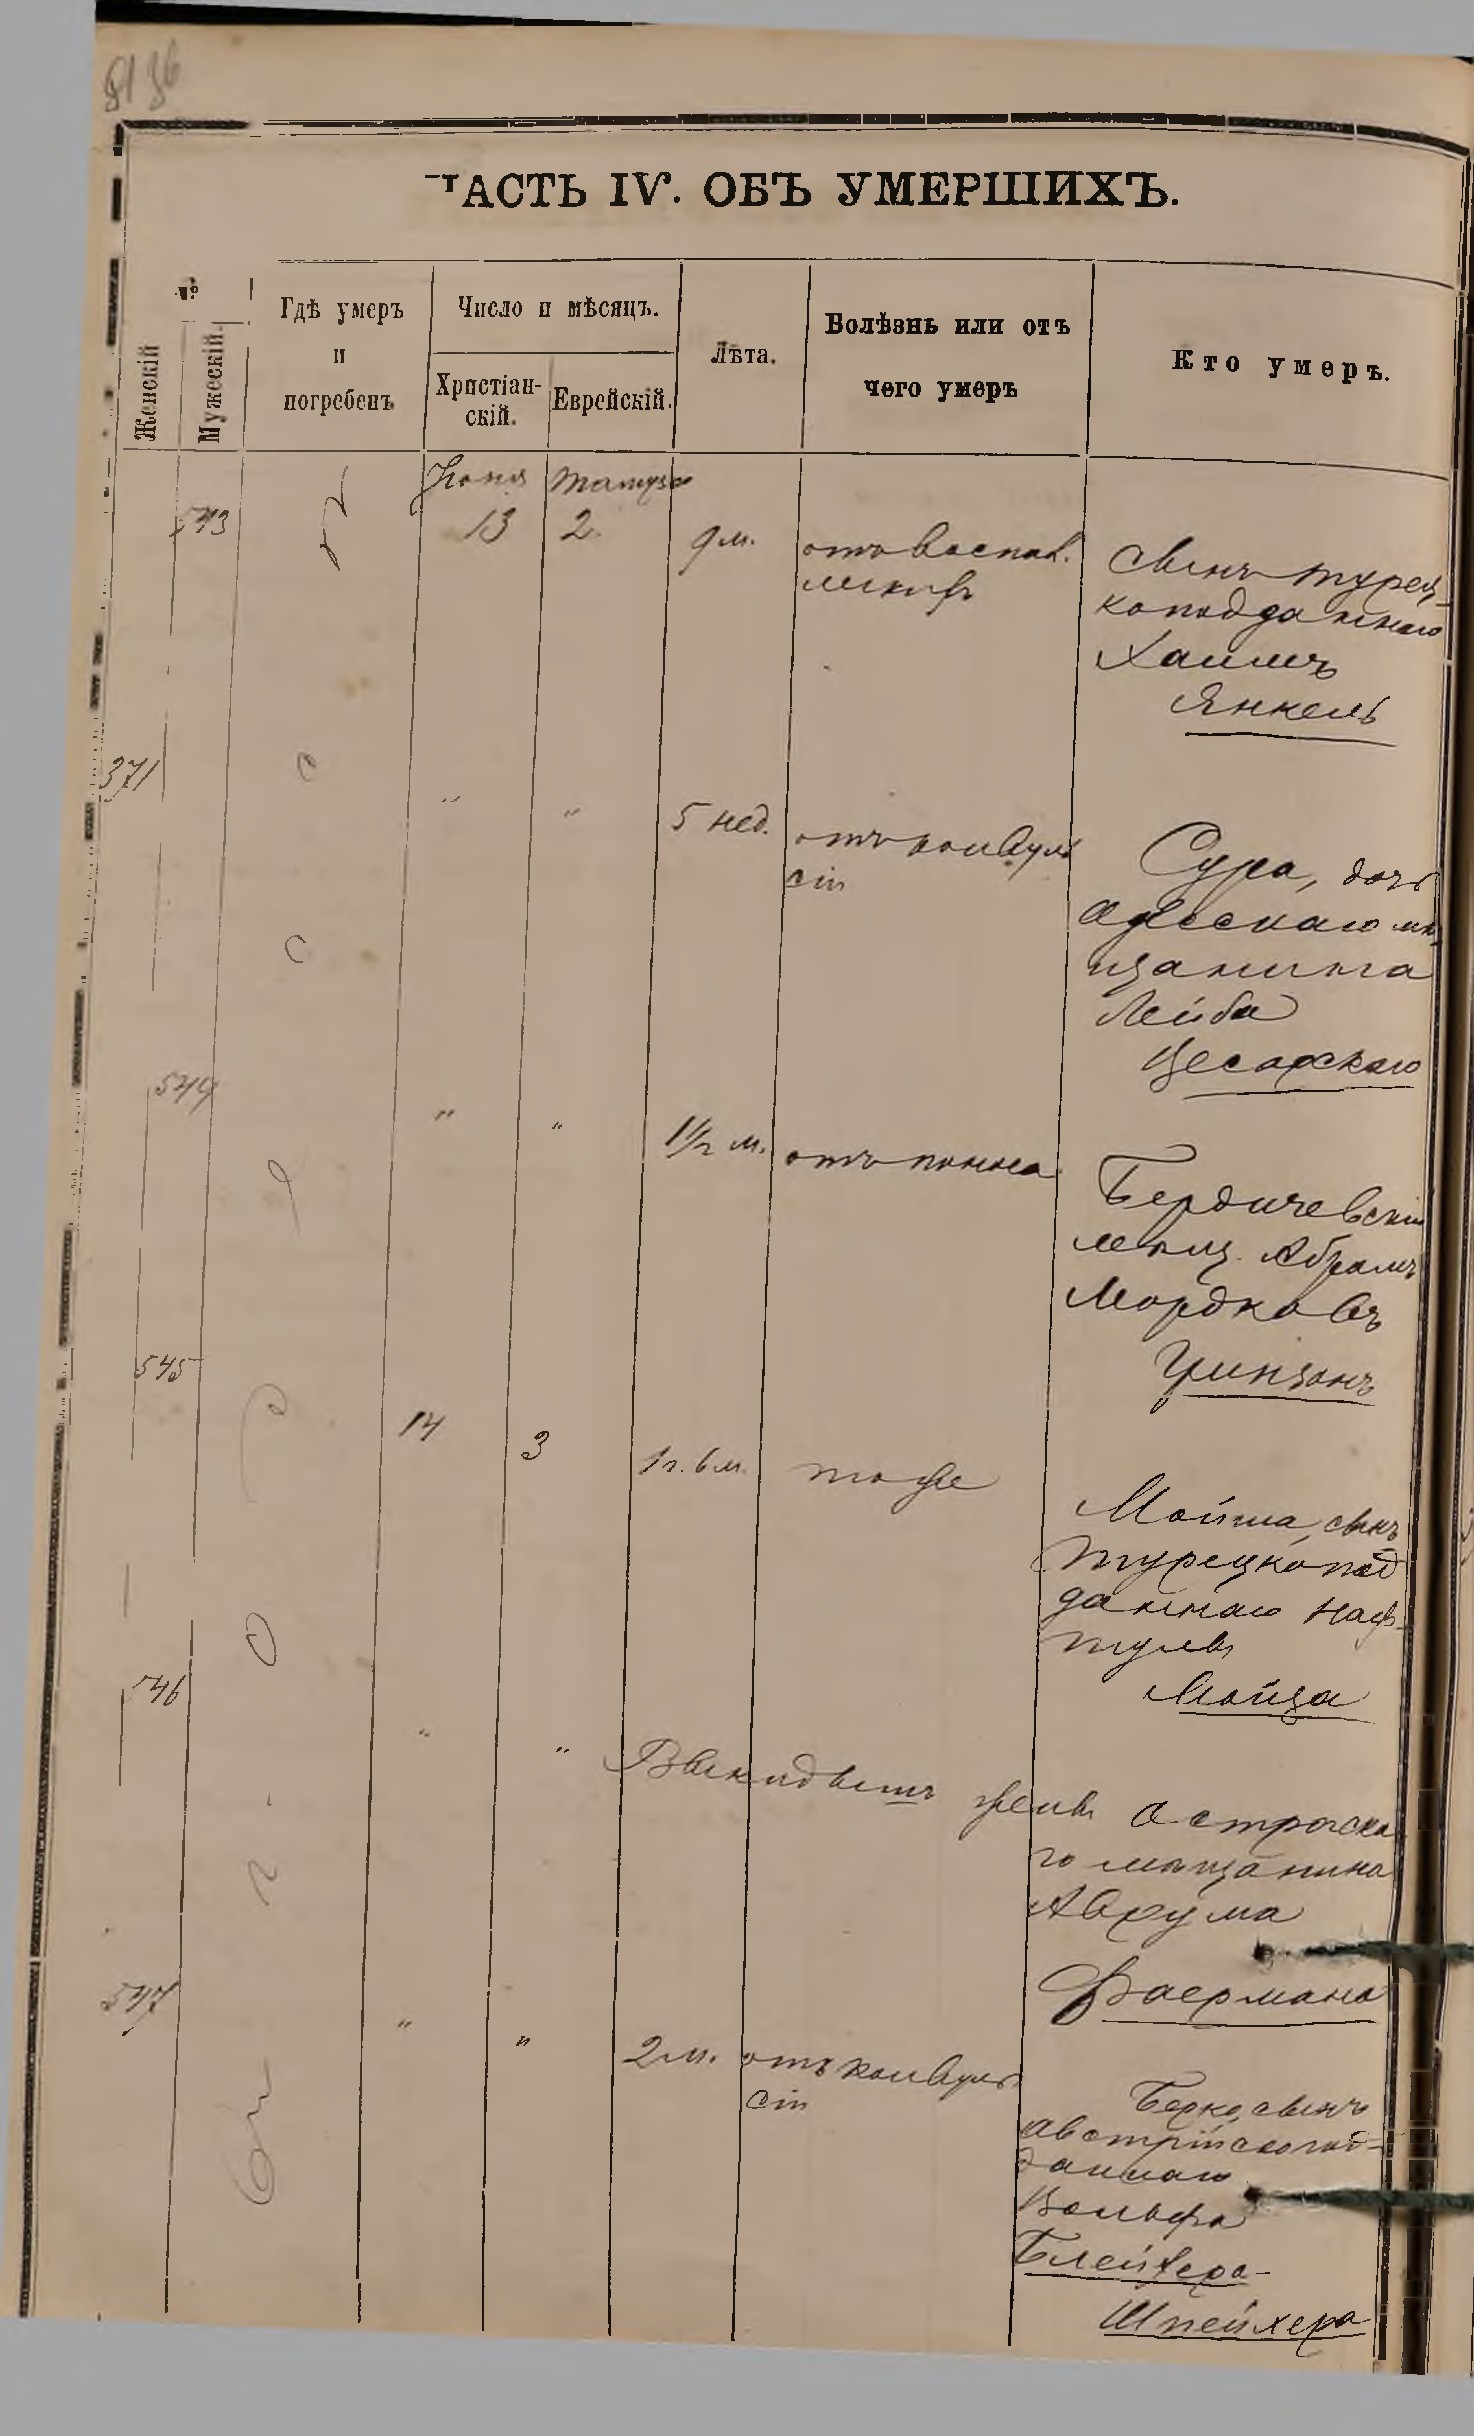 ЧАСТЬ IV. ОБЪ УМЕРШИХЪ.
№
Женскій
Мужескій.
Гдѣ умеръ
и
погребенъ
Число и мѣсяцъ.
Христіан-
скій.
Еврейскій.
Лѣта.
Болѣзнь или отъ
чего умеръ
Кто умеръ.
въ Одессѣ
Іюня Тамуза
543 13 2 9 м. отъ воспал.
легкихъ
сынъ турец-
коподданнаго
Хаимъ
Янкель
371 " " 5 нед. отъ конвуль
сіи
Сура, дочь
Одесскаго мѣ
щанина
Лейбы
Цесарскаго
544 " " 1½ м. отъ поноса
Бердичевскій
мѣщ. Абрамъ
Мордковъ
Гринзонъ
545 14 3 1 г. 6 м. тоже
Мойша, сынъ
турецкопод
даннаго Наф-
тулы
Мойза
546 " " Выкидышъ жены Острогска
го мѣщанина
Аврума
Фаермана
547 " " 2 м. отъ конвуль
сіи
Берко, сынъ
австрійскопод-
даннаго
Вольфа
Блейхера-
Шпейхера